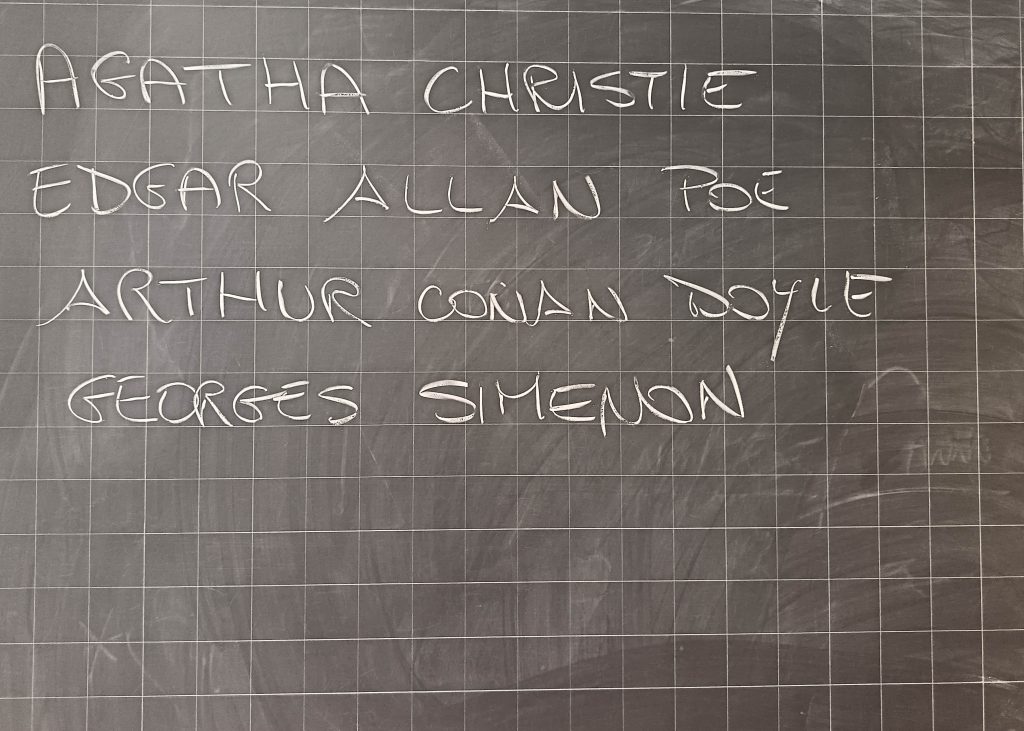 AGATHA CHRISTIE
EDGAR ALLAN POE
ARTHUR CONAN DOYLE
GEORGES SIMENON